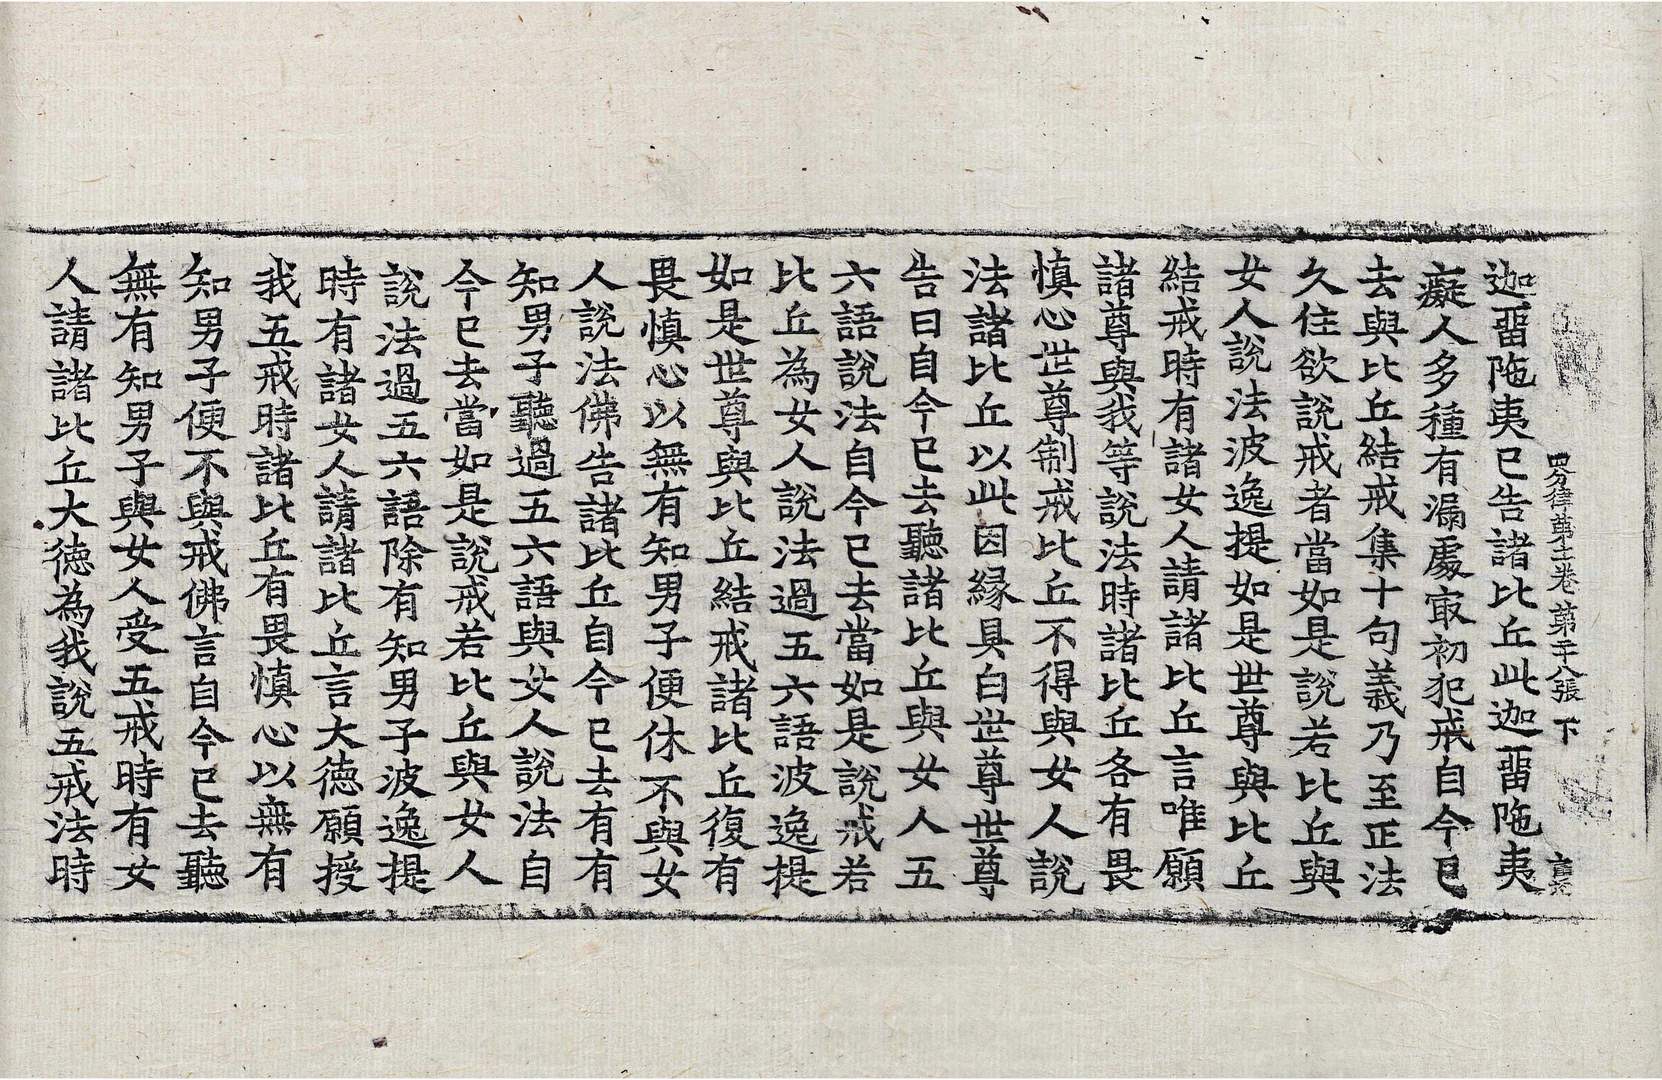 四分律第十一卷 第二十八張 下
迦畱陁夷已告諸比丘此迦畱陁夷
癡人多種有漏處㝡初犯戒自今已
去與比丘結戒集十句義乃至正法
久住欲說戒者當如是說若比丘與
女人說法波逸提如是世尊與比丘
結戒時有諸女人請諸比丘言唯願
諸尊與我等說法時諸比丘各有畏
慎心世尊制戒比丘不得與女人說
法諸比丘以此因緣具白世尊世尊
告曰自今已去聽諸比丘與女人五
六語說法自今已去當如是說戒若
比丘為女人說法過五六語波逸提
如是世尊與比丘結戒諸比丘復有
畏慎心以無有知男子便休不與女
人說法佛告諸比丘自今已去有有
知男子聽過五六語與女人說法自
今已去當如是說戒若比丘與女人
說法過五六語除有知男子波逸提
時有諸女人請諸比丘言大德願授
我五戒時諸比丘有畏慎心以無有
知男子便不與戒佛言自今已去聽
無有知男子與女人受五戒時有女
人請諸比丘大德為我說五戒法時